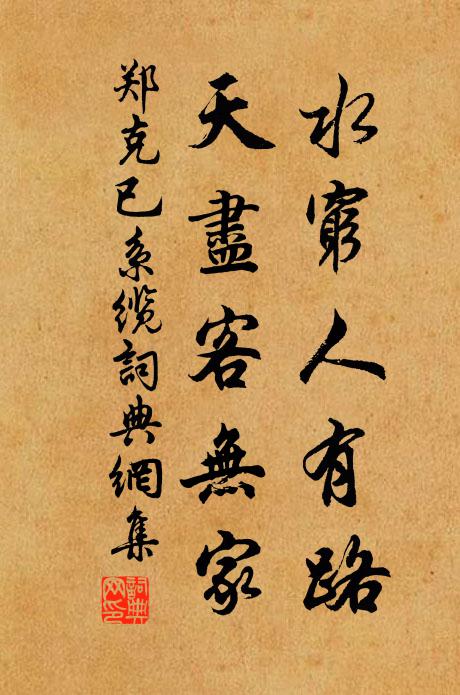 水窮人有路
天盡客無家
郑克已系缆詞典網集
詞典
网印